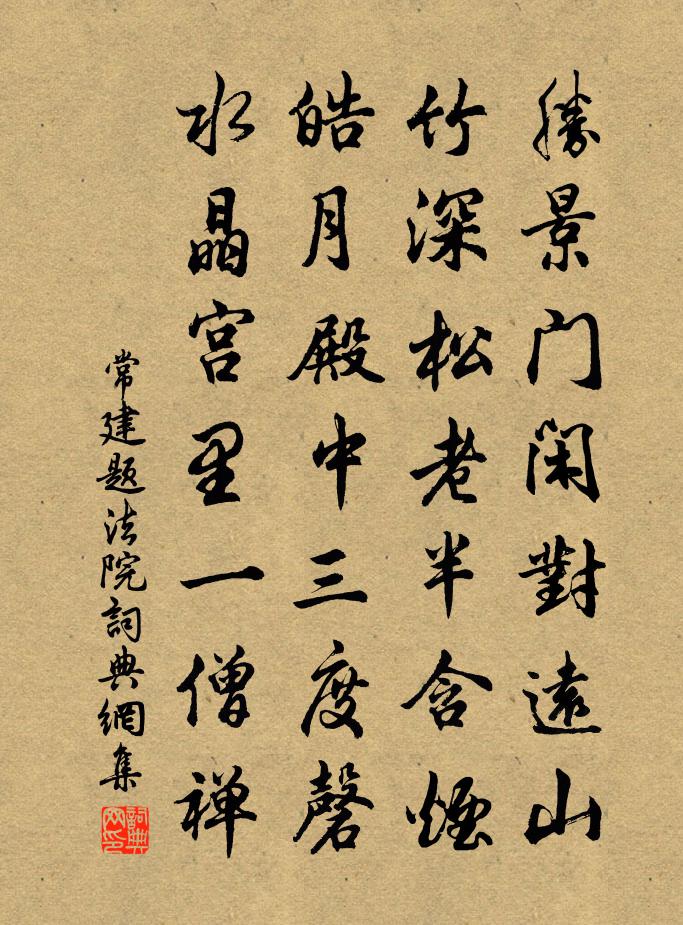 勝景門閑對遠山
竹深松老半含煙
皓月殿中三度磬
水晶宮里一僧禅
常建題法院詞典網集
詞典網印